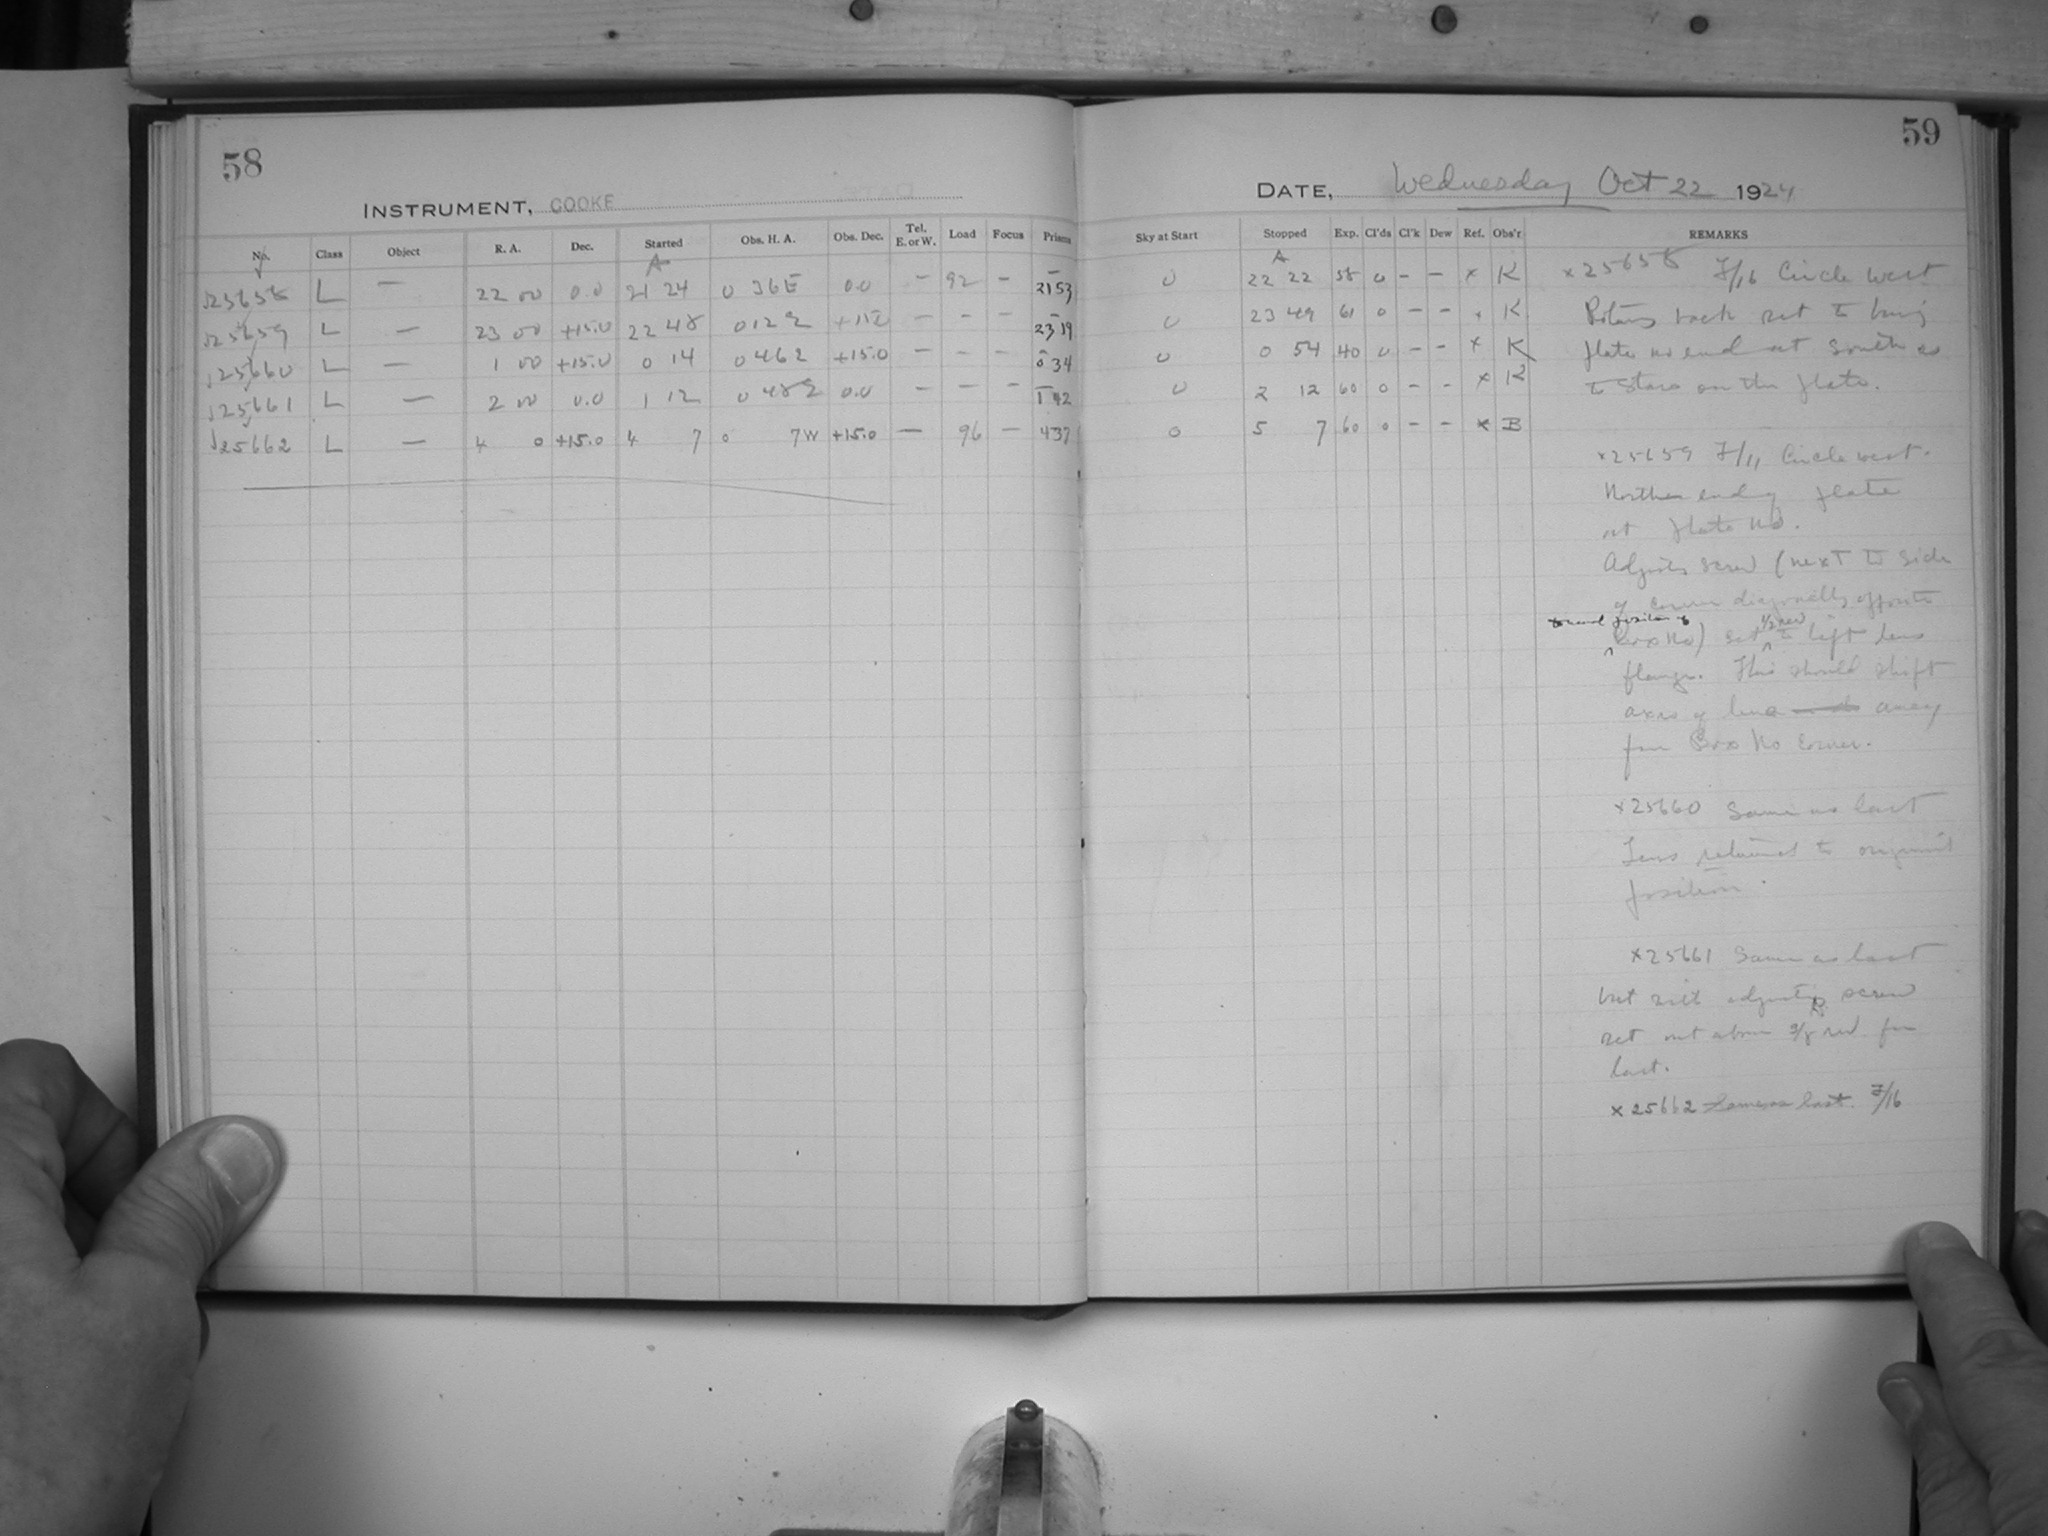 58
INSTRUMENT, COOKE
No. Class Object R. A. Dec. Started Obs. H. A. Obs. Dec. Tel. E. or W. Load Focus Prisms
A
25658 L — 22 00 0.0 21 24 0 36E 0.0 — 92 — 2153
25659 L — 23 00 +15.0 22 48 0 12 +15.0 — — — 2319
25660 L — 1 00 +15.0 0 14 0 46 +15.0 — — — 0 34
25661 L — 2 00 0.0 1 12 0 48 0.0 — — — 1 42
25662 L — 4 0 +15.0 4 7 0 7W +15.0 — 96 — 437
59
DATE, Wednesday Oct 22 1924
Sky at Start Stopped Exp. Cl'ds Cl'k Dew Ref. Obs'r REMARKS
A
0 22 22 58 0 — — x K
0 23 49 61 0 — — x K
0 0 54 40 0 — — x K
0 2 12 60 0 — — x K
0 5 7 60 0 — — x B
x25658 F/16 Circle west
back set to bring
plate no end at South as
to Stars on the plate.
x25659 F/11 Circle west.
Northern end of plate
at plate no.
Adjusting screw (next to side
of corner diagonally opposite
toward position of
Box No) set 1/2 rev to lift lens
flange. This should shift
axis of lens away
from Box No corner.
x25660 Same as last
Lens returned to original
position.
x25661 Same as last
but with adjusting screw
set out about rev from
last.
x25662 Same as last. F/16